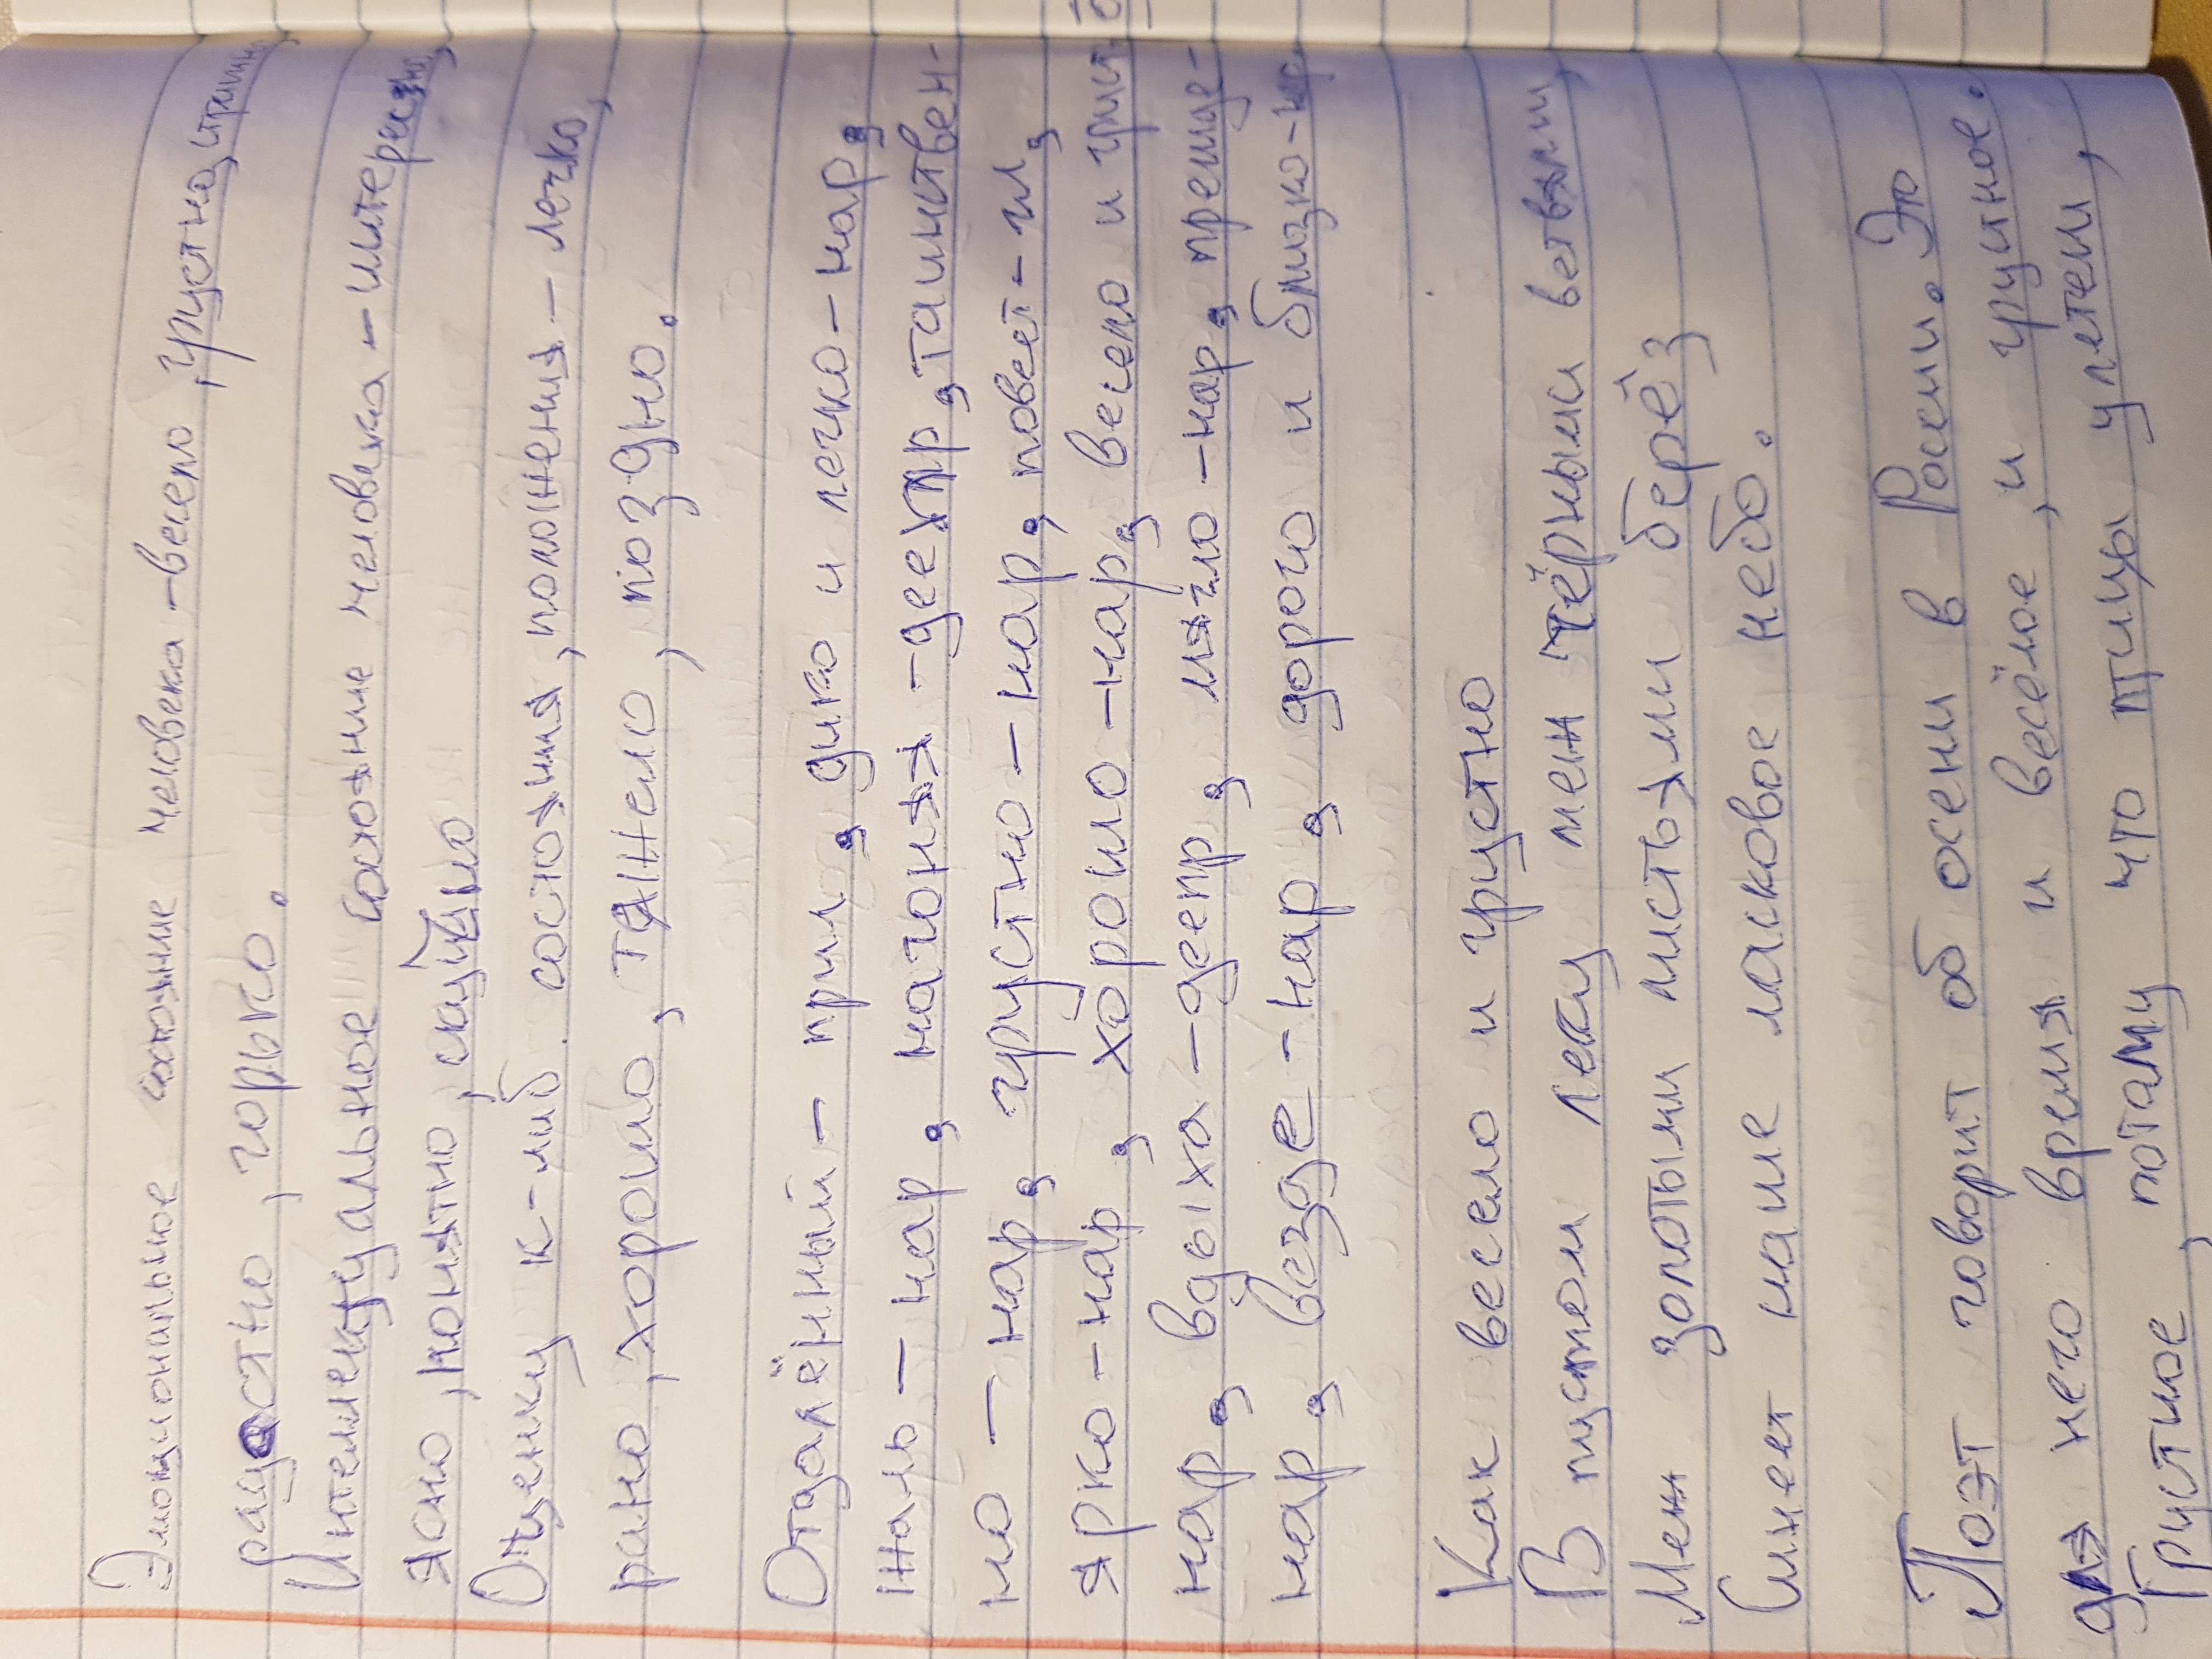 Эмоциональное состояние человека - весело, грустно, страшно,
радостно, горько.
Интеллектуальное состояние человека - интересно,
ясно, понятно, скучно
Оценку к-либ. состояния, положения - легко,
рано, хорошо, тяжело, поздно.
Отдалённый - прил., дико и легко - нар.,
жаль - нар., нагоняя - деепр., таинствен-
но - нар., грустно - нар., повеет - гл.,
ярко - нар., хорошо - нар., весело и груст
нар., вздыхая - деепр., мягло - нар., преще-
нар., везде - нар., дорого и близко - нар
Как весело и грустно
В пустом лесу меж чёрными ветвями,
Меж золотыми листьями берёз
Синеет наше ласковое небо.
Поэт говорит об осени в России. Это
для него время и весёлое, и грустное.
Грустное, потому что птицы улетели,